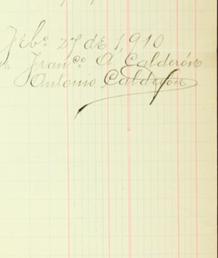 Feb.o 27 de 1,910
Franc.o A Calderón
Antonio Calderón